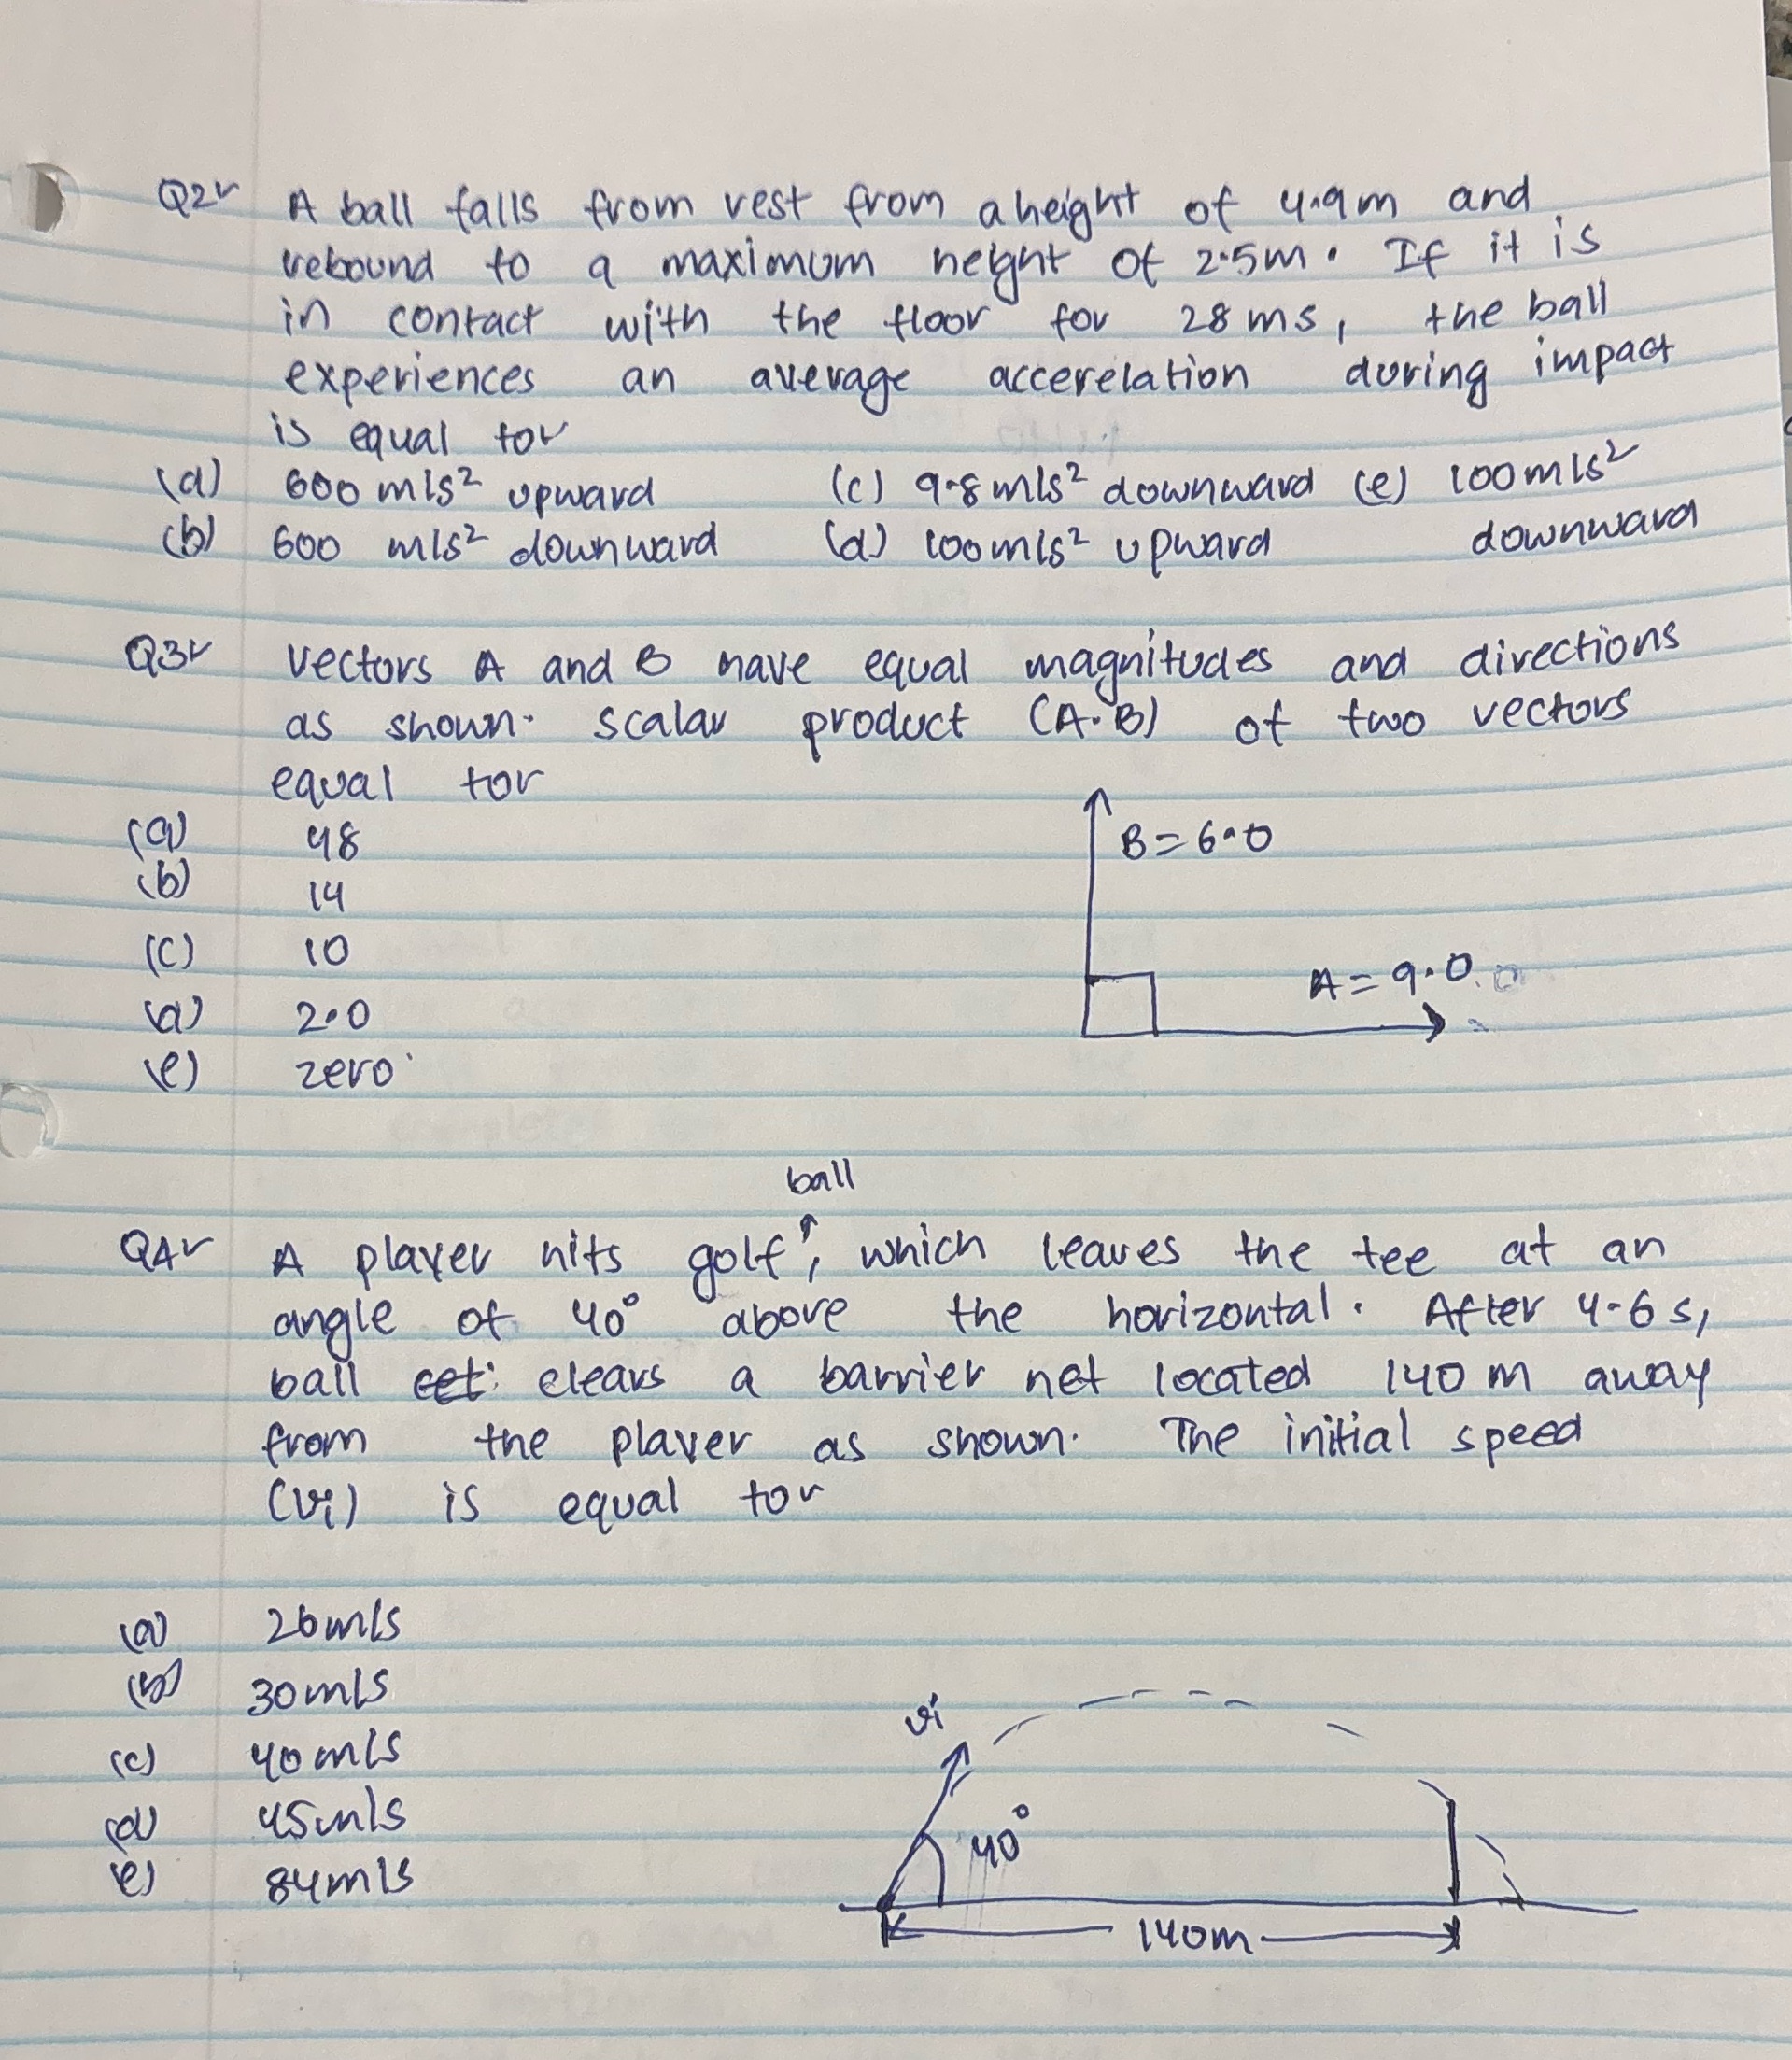 Q2 A ball falls from rest from a height of 4.9m and
rebound to a maximum height of 2.5m. If it is
in contact with the floor for 28 ms, the ball
experiences an average accerelation during impact
is equal to
(a) 600 m/s² upward (c) 9.8 m/s² downward (e) 100 m/s²
(b) 600 m/s² downward (d) 100 m/s² upward downward
Q3 Vectors A and B have equal magnitudes and directions
as shown. scalar product (A.B) of two vectors
equal to
(a) 48
(b) 14
(c) 10
(d) 2.0
(e) zero
B = 6.0
A = 9.0
ball
Q4 A player hits golf, which leaves the tee at an
angle of 40° above the horizontal. After 4.6 s,
ball clears a barrier net located 140 m away
from the player as shown. The initial speed
(vi) is equal to
(a) 26 m/s
(b) 30 m/s
(c) 40 m/s
(d) 45 m/s
(e) 84 m/s
vi
40°
140m